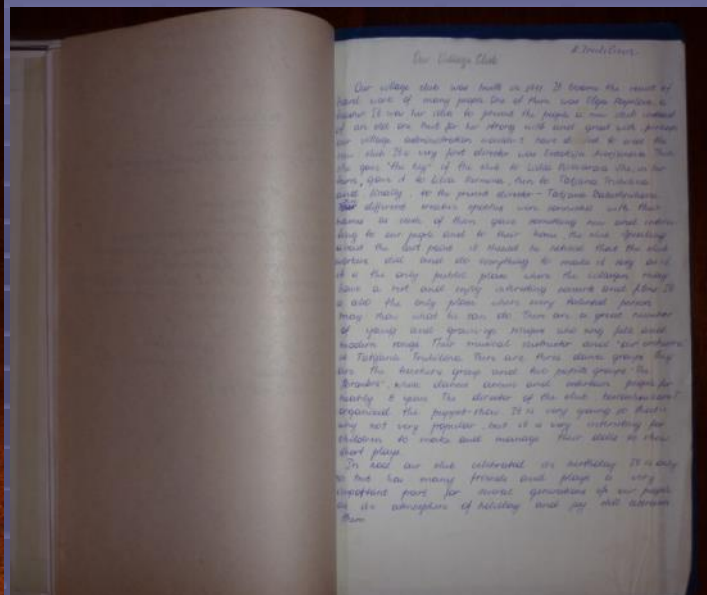 Our Village Club
Our village club was built in It became the result of
hard work of many people One of them was Olga a
teacher It was her idea to present the people a new club instead
of an old one But for her strong will and great wish perhaps
our village administration wouldn't have dared to start the
new club It's very first director was Then
she gave "the key" of the club to Lidia she, in her
turn, gave it to Lilia then to Tatjana Trubilina
and finally, to the present director - Tatjana
different creative epochs were connected with their
names as each of them gave something new and interes
ting to our people and to their home, the club Speaking
about the last point it should be noticed that the club
workers did and do everything to make it cosy as it
it is the only public place where the villagers may
have a rest and enjoy interesting concerts and films It
is also the only place where every talented person
may show what he can do There are a great number
of young and grown-up singers who sing folk and
modern songs Their musical instructor and
is Tatjana Trubilina There are three dance groups They
are the teachers group and two pupils groups The
whose dances amuse and entertain people for
nearly 8 years The director of the club
organised the puppet-show It is very young so that's
why not very popular, but it is very interesting for
children to make and manage their dolls to show
short plays
In our club celebrated its birthday It is only
but has many friends and plays a very
important part for several generations of our people
as its atmosphere of holiday and joy still
them